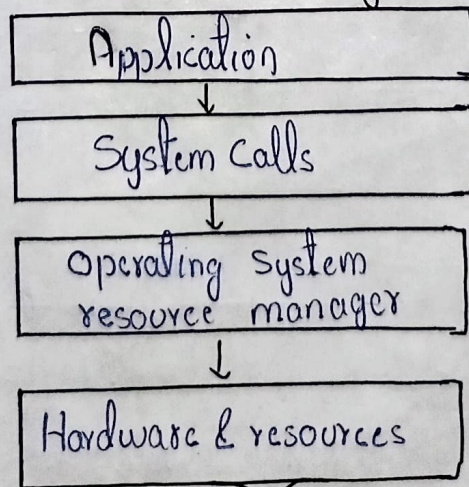 Application
System Calls
operating system
resource manager
Hardware & resources